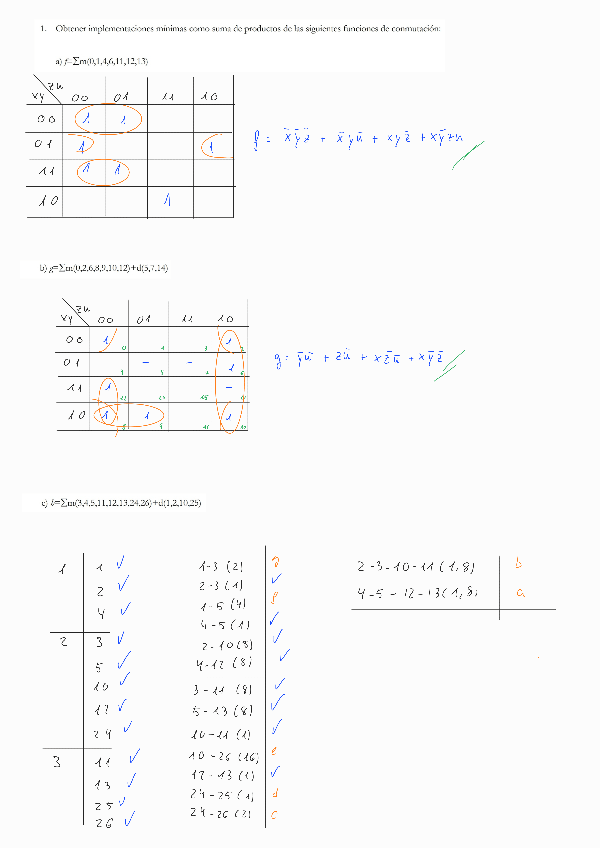 1. Obtener implementaciones mínimas como suma de productos de las siguientes funciones de conmutación:
a) f=∑m(0,1,4,6,11,12,13)
zu
xy 00 01 11 10
00 1 1
01 1 1
11 1 1
10 1
f = x̄ȳz̄ + x̄yū + xyz̄ + xȳzu
b) g=∑m(0,2,6,8,9,10,12)+d(5,7,14)
zu
xy 00 01 11 10
00 1 0 1 3 1 2
01 4 5 - - 1 6
11 1 12 15 - 14
10 1 8 1 9 1 10
g = ȳū + zū + xz̄ū + xȳz̄
c) h=∑m(3,4,5,11,12,13,24,26)+d(1,2,10,25)
1 1 ✓ 1-3 (2) g 2-3-10-11 (1,8) b
2 ✓ 2-3 (1) ✓ 4-5-12-13 (1,8) a
4 ✓ 1-5 (4) f
4-5 (1) ✓
2 3 ✓ 2-10 (8) ✓
5 ✓ 4-12 (8) ✓
10 ✓ 3-11 (8) ✓
12 ✓ 5-13 (8) ✓
24 ✓ 10-11 (1) ✓
3 11 ✓ 10-26 (16) e
13 ✓ 12-13 (1) ✓
25 ✓ 24-25 (1) d
26 ✓ 24-26 (2) c